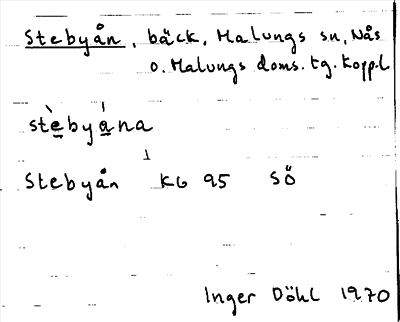 Stebyån, bäck, Malungs sn, Nås
o. Malungs doms. tg. Koppl
stèbyána
Stebyån K6 95 SÖ
Inger Döhl 1970